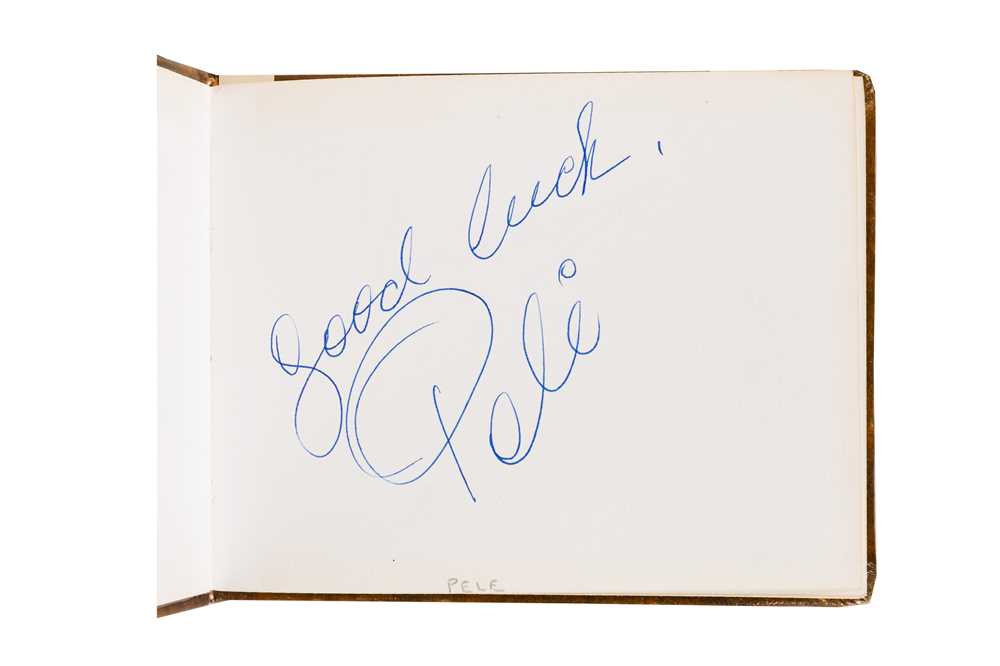 good luck.
Pelé
PELE